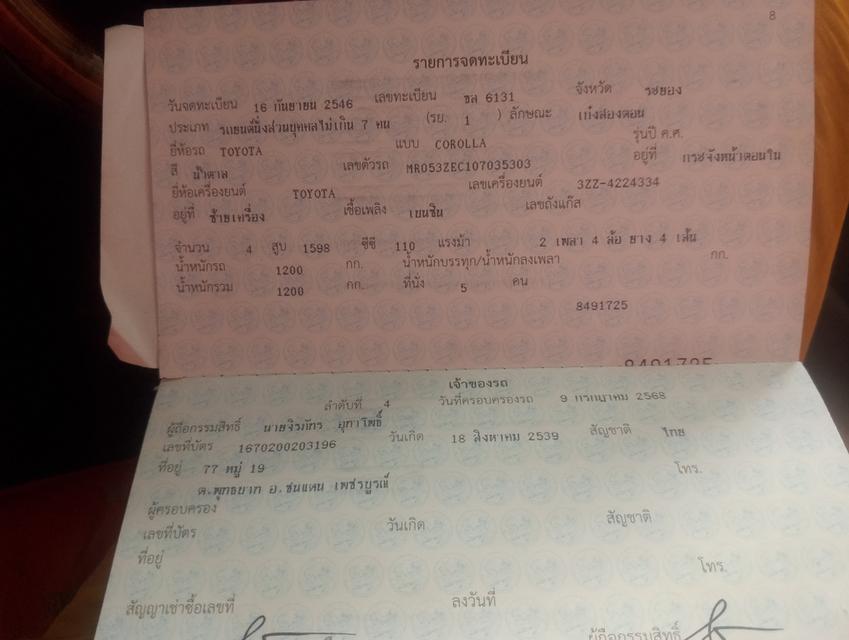 8
รายการจดทะเบียน
วันจดทะเบียน 16 กันยายน 2546 เลขทะเบียน ขล 6131 จังหวัด ระยอง
ประเภท รถยนต์นั่งส่วนบุคคลไม่เกิน 7 คน (รย. 1 ) ลักษณะ เก๋งสองตอน
ยี่ห้อรถ TOYOTA แบบ COROLLA รุ่นปี ค.ศ.
สี น้ำตาล เลขตัวรถ MR053ZEC107035303 อยู่ที่ กระจังหน้าตอนใน
ยี่ห้อเครื่องยนต์ TOYOTA เลขเครื่องยนต์ 3ZZ-4224334
อยู่ที่ ซ้ายเครื่อง เชื้อเพลิง เบนซิน เลขถังแก๊ส
จำนวน 4 สูบ 1598 ซีซี 110 แรงม้า 2 เพลา 4 ล้อ ยาง 4 เส้น
น้ำหนักรถ 1200 กก. น้ำหนักบรรทุก/น้ำหนักลงเพลา กก.
น้ำหนักรวม 1200 กก. ที่นั่ง 5 คน
8491725
8491725
เจ้าของรถ
ลำดับที่ 4 วันที่ครอบครองรถ 9 กรกฎาคม 2568
ผู้ถือกรรมสิทธิ์ นายจิรภัทร อุทาโพธิ์
เลขที่บัตร 1670200203196 วันเกิด 18 สิงหาคม 2539 สัญชาติ ไทย
ที่อยู่ 77 หมู่ 19 โทร.
ต.พุทธบาท อ.ชนแดน เพชรบูรณ์
ผู้ครอบครอง
เลขที่บัตร วันเกิด สัญชาติ
ที่อยู่ โทร.
สัญญาเช่าซื้อเลขที่ ลงวันที่
ผู้ถือกรรมสิทธิ์